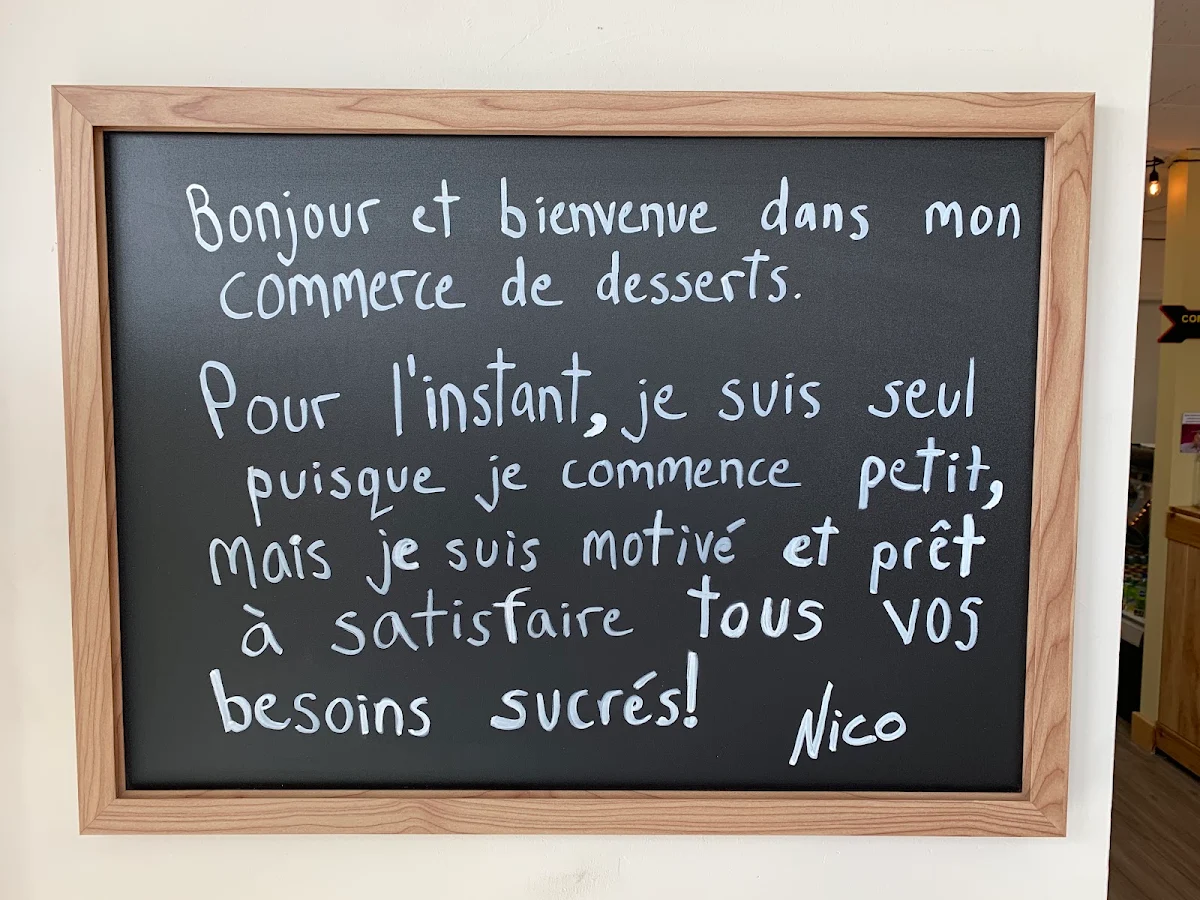 Bonjour et bienvenue dans mon
commerce de desserts.
Pour l'instant, je suis seul
puisque je commence petit,
mais je suis motivé et prêt
à satisfaire tous vos
besoins sucrés!
Nico